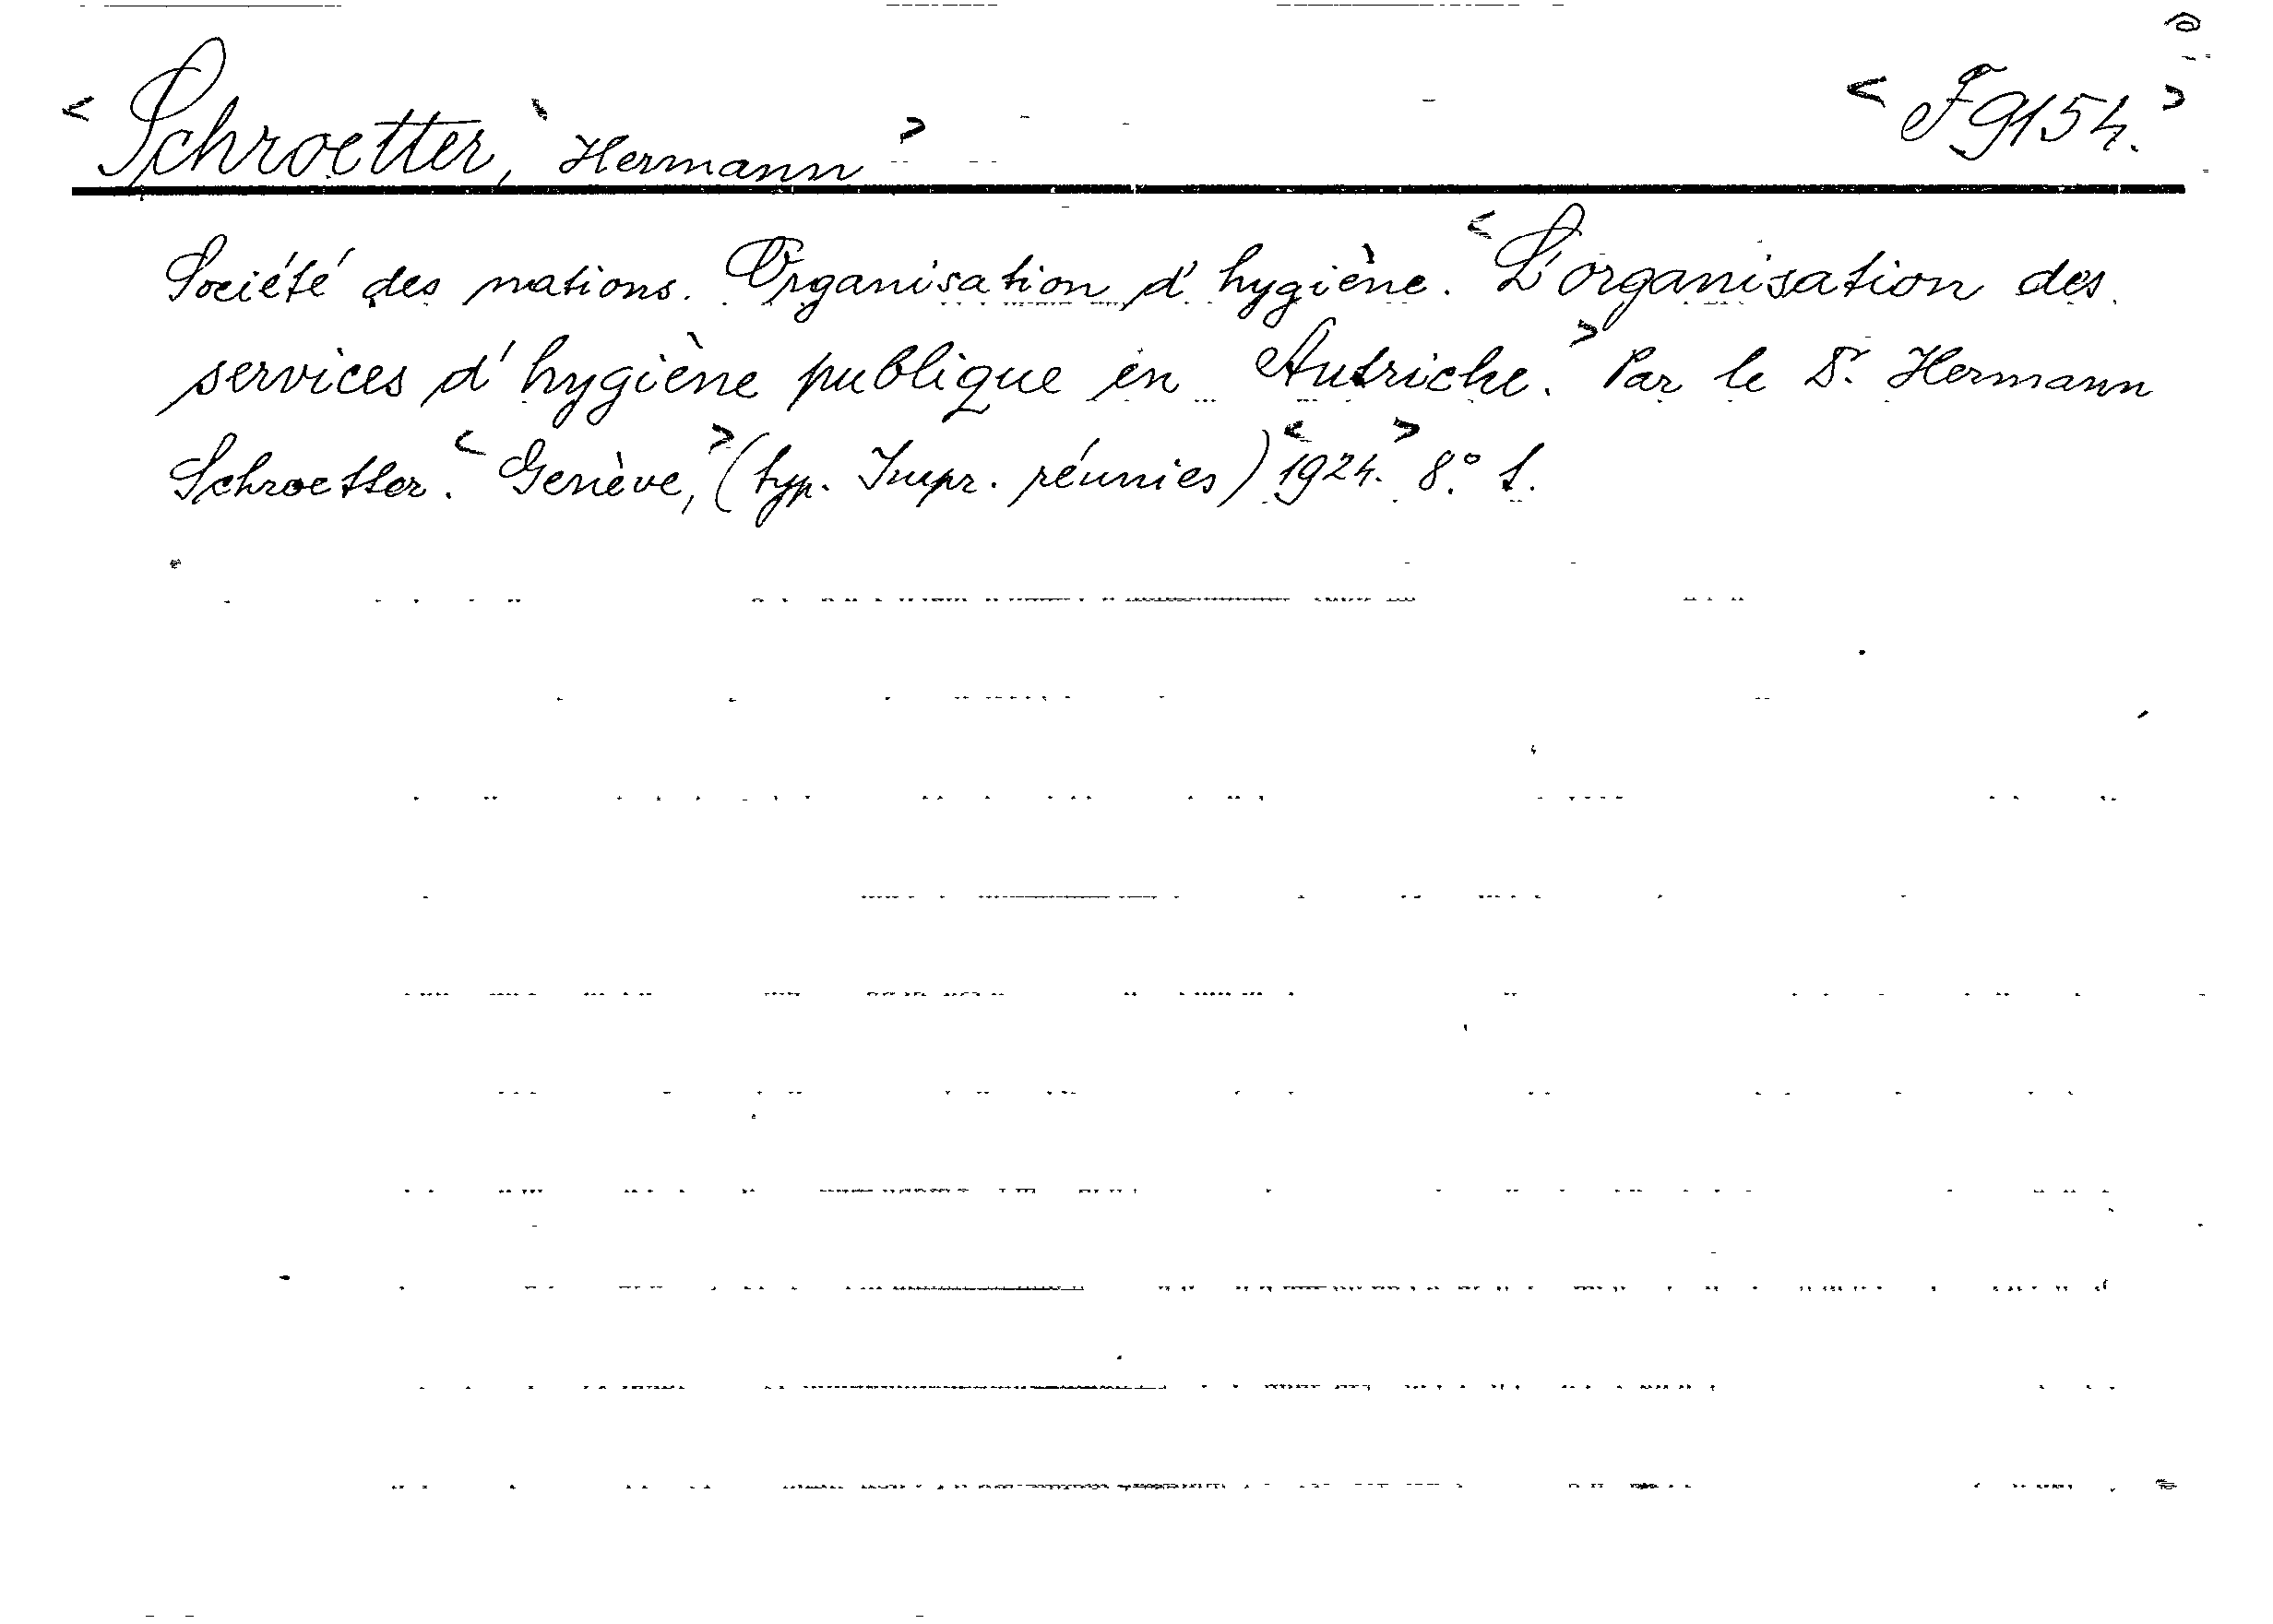 < Schroetter, ` Hermann >
< F 9154. >
Société des nations. Organisation d'hygiène. < L'organisation des
services d'hygiène publique en Autriche. > Par le Dr. Hermann
Schroetter. < Genève, > (typ. Impr. réunies) < 1924. > 8.° 1.